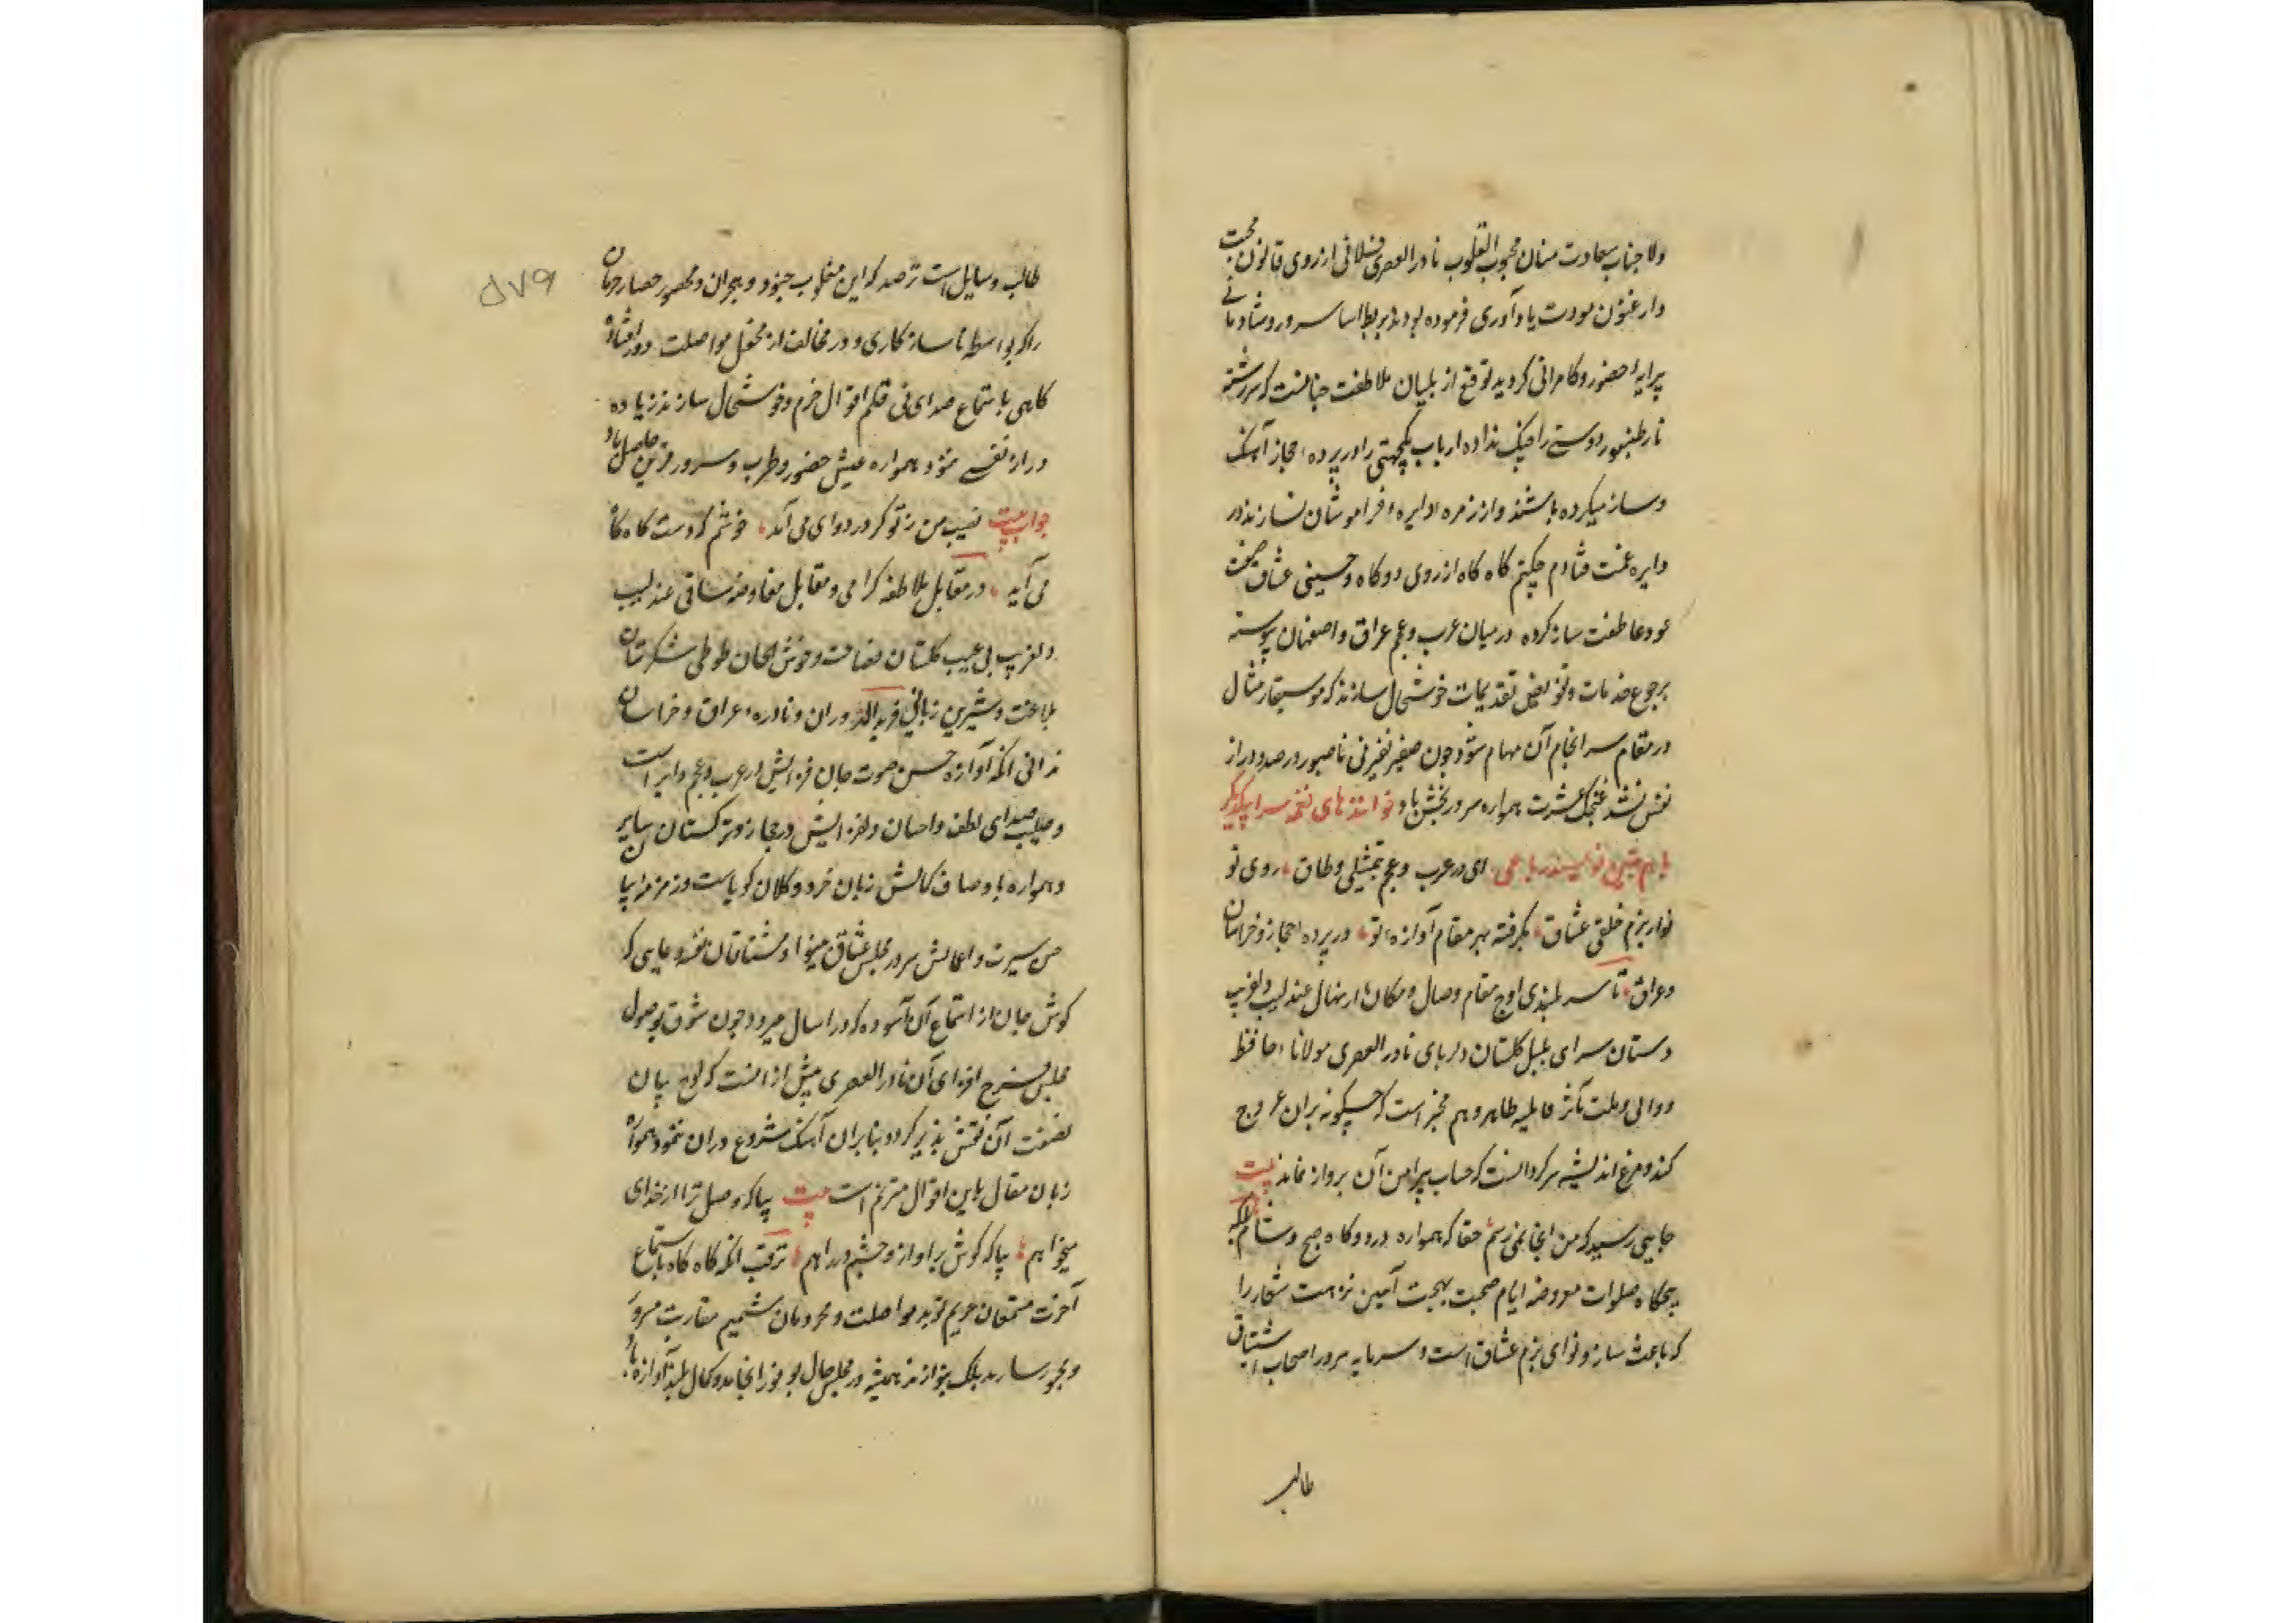 ولا جناب سعادت منان محبوب القلوب نادر العصری فلانی از روی قانون محبت
وارغنون مودت یادآوری فرموده بودند بربط اساس سرور و شادمانی
پیرایه حضور و کامرانی کردید توقع از بلبلان ملاطفت جنانست که سررشته
تار طنبور دوستی را نداده ارباب یکجهتی را در پرده حجاز آهنک
و ساز میکرده باشند و از زمره دایره فراموشان نسازند در
دایره فتادم چکنم کاه کاه از روی دوکاه و حسینی عشاق صحبت
عود عاطفت ساز کرده در میان عرب و عجم عراق و اصفهان پیوسته
برجوع خدمات و تفویض تقدیمات خوشحال سازند که موسیقار مثال
در مقام سرانجام آن مهام شود چون صفیر نفیر نی ناصبور در صدد دراز
نفس نشد غجک عشرت همواره سرور بخش باد خوانندهای نغمه سرا بیکدیگر
باهم چنین نویسند رباعی ای در عرب و عجم تمثیلی و طاق روی تو
نوا بزم خلقی عشاق بکرفته بهر مقام آوازه تو در پرده حجاز و خراسان
و عراق تا سربلندی اوج مقام وصال و مکان عندلیب دلفریب
دستان سرای بلبل کلستان دلربای نادر العصری مولانا حافظ
طاهر وهم مخبر است که چسکونه بران عروج
کند و مرغ اندیشه سرکردانست که حساب پیرامن آن پرواز نماید بیت
جایی رسید که من انجا نمی رسم حقا که همواره در دوکاه صبح و شام بلکه
پنجکاه صلوات مفروضه ایام صحبت بهجت آمین نزهت شعار را
که باعث ساز و نوای بزم عشاق است و سرمایه سرور اصحاب اشتیاق
طالب
۵۷۹
طالب و سایل است ترصد که این مغلوب جنود هجران و محصور حصار حرمان
را که بواسطه ناسازکاری دور مخالف از محفل مواصلت دور افتاده
کاهی باستماع صدای نی قلم اقوال خرم و خوشحال سازند زیاده
درازه نفسی ننمود همواره عیش حضور و طرب و سرور قرین حاصل باد
جواب بیت نصیب من ز تو کر درد وای می آید خوشم که دوست کاه کاه
می آید در مقابل ملاطفه کرامی و مقابل مفاوضه عندلیب
دلفریب بی عیب کلستان فصاحت و خوش الحان طوطی شکرستان
بلاغت و شیرین زبانی فرید الدوران و نادره عراق و خراسان
آنکه آوازه حسن صوت جان فزایش در عرب و عجم دایر است
و صدای لطف و احسان دلفزایش در حجاز و ترکستان سایر
و همواره باوصاف کمالش زبان خرد و کلان کویاست و زمزمه
حسن سیرت و اعمالش سرور مجلس عشاق بینوا و مشتاقان نغمه دعایی که
کوش جان از استماع آن آسوده کردد ارسال میرود چون شوق بوصول
مجلس فرح افزای آن نادر العصری بیش از انست که لوح بیان
بصفت آن نقش پذیر کردد بنابران آهنک شروع دران ننمود همواره
زبان مقال باین اقوال مترنم است بیت بیا که وصل ترا از خدای
میخواهم بیا که کوش بر آواز و چشم در راهم ترقب آنکه کاه کاه باستماع
مواصلت و محرومان شمیم مقاربت مسرور
همیشه در مجلس حال کمال بلند آوازه باد